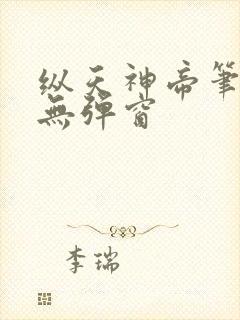 纵天神帝筆
無弹窗
李瑞